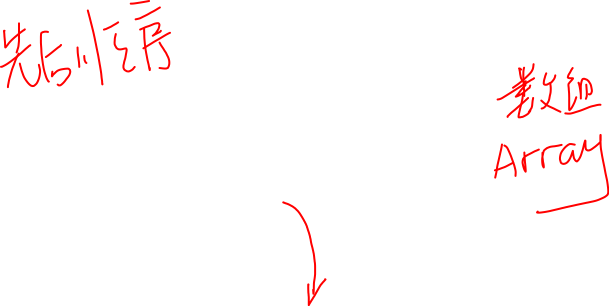 先后顺序
数组
Array